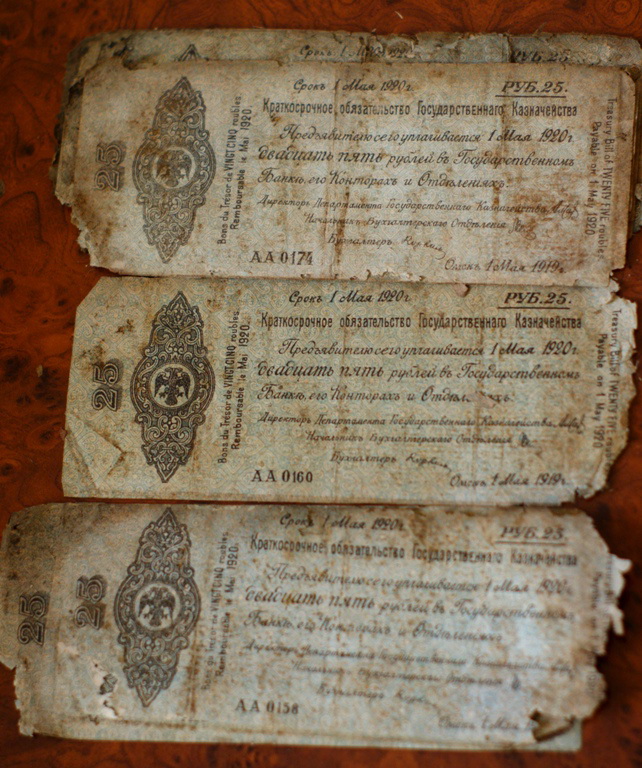 Срокъ 1 Мая 1920 г.
РУБ. 25.
Срокъ 1 Мая 1920 г.
РУБ. 25.
Краткосрочное обязательство Государственнаго Казначейства
Предъявителю сего уплачивается 1 Мая 1920 г.
двадцать пять рублей въ Государственномъ
Банкѣ, его Конторахъ и Отдѣленіяхъ.
Директоръ Департамента Государственнаго Казначейства
Начальникъ Бухгалтерскаго Отдѣленія
Бухгалтеръ
АА 0174
Омскъ 1 Мая 1919 г.
25
Bons du Trésor de VINGT CINQ roubles.
Remboursable le Mai 1920.
Treasury Bill of TWENTY FIVE roubles
Payable on 1 May 1920.
Срокъ 1 Мая 1920 г.
РУБ. 25.
Краткосрочное обязательство Государственнаго Казначейства
Предъявителю сего уплачивается 1 Мая 1920 г.
двадцать пять рублей въ Государственномъ
Банкѣ, его Конторахъ и
Директоръ Департамента Государственнаго Казначейства
Начальникъ Бухгалтерскаго Отдѣленія
Бухгалтеръ
АА 0160
Омскъ 1 Мая 1919 г.
25
Bons du Trésor de VINGT CINQ roubles.
Remboursable le Mai 1920.
Treasury Bill of TWENTY FIVE
Payable on 1 May 1920
Срокъ 1 Мая 1920 г.
РУБ. 25.
Краткосрочное обязательство Государственнаго Казначейства
Предъявителю сего уплачивается 1 Мая 1920 г.
двадцать пять рублей въ Государственномъ
Банкѣ, его Конторахъ и Отдѣленіяхъ
Директоръ Департамента Государственнаго Казначейства
Бухгалтеръ
АА 0158
Омскъ 1 Мая
25
25
Bons du Trésor de VINGT CINQ roubles.
Remboursable le Mai 1920.